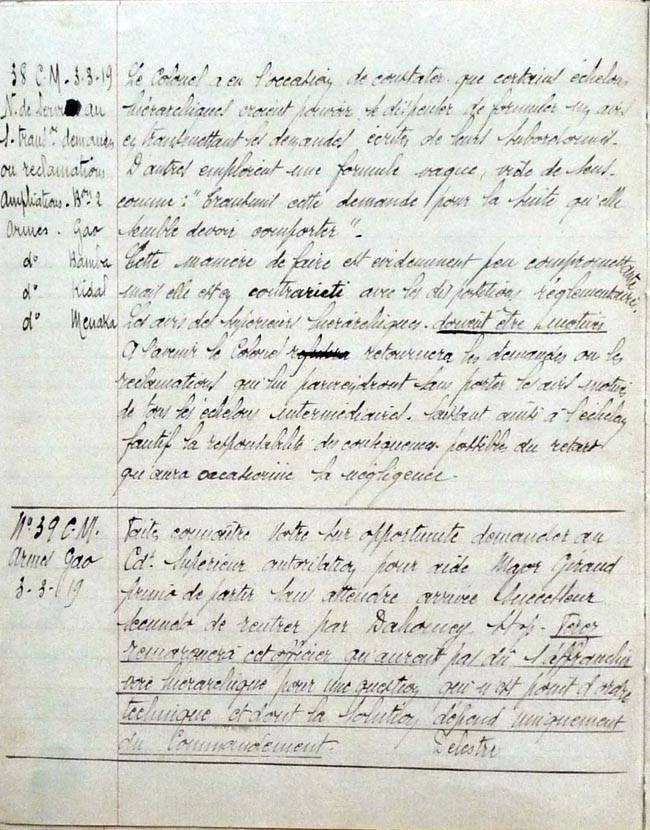 38 C.M. 3-3-19
N. de Service au
S. transon demandes
ou réclamations
Ampliations. Bon 2
Armes. Gao
do Bamba
do Kidal
do Menaka
Le Colonel a eu l'occasion de constater que certains échelons
hiérarchiques croient pouvoir se dispenser de formuler un avis
en transmettant les demandes écrites de leurs subordonnés.
D'autres emploient une formule vague, vide de sens
comme: "Transmis cette demande pour la suite qu'elle
semble devoir comporter".
Cette manière de faire est évidemment peu compromettante
mais elle est en contrariété avec les dispositions réglementaires.
Les avis des supérieurs hiérarchiques doivent être motivés
A l'avenir le Colonel retournera les demandes ou les
réclamations qui lui parviendront sans porter les avis motivés
de tous les échelons intermédiaires. laissant ainsi à l'échelon
fautif la responsabilité des conséquences possible du retard
qu'aura occasionné sa négligence
No 39 C.M.
Armes Gao
3-3-19
Faites connaître votre sur opportunité demander au
Cdt Supérieur autorisation pour aide Major Giraud
primo de partir sans attendre arrivée successeur
secundo de rentrer par Dahomey. Stop. Ferez
remarquer à cet officier qu'aurait pas dû s'affranchir
voie hiérarchique pour une question qui n'est point d'ordre
technique et dont la solution dépend uniquement
du Commandement. Delestre